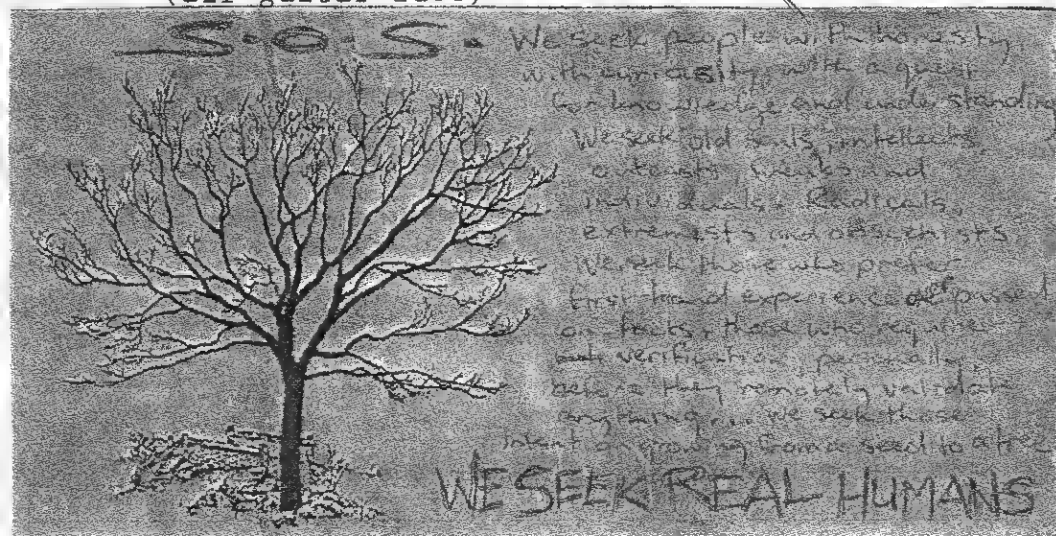 (all guitar
S.O.S. We seek people with honesty,
with curiosity, with a quest
for knowledge and understanding
We seek old souls, intellects
outcasts, freaks and
individuals. Radicals,
extremists and
We seek those who prefer
first hand experience
on facts, those who require
verification, personally,
before they remotely validate
anything... We seek those
intent on growing from a seed to a tree
WE SEEK REAL HUMANS